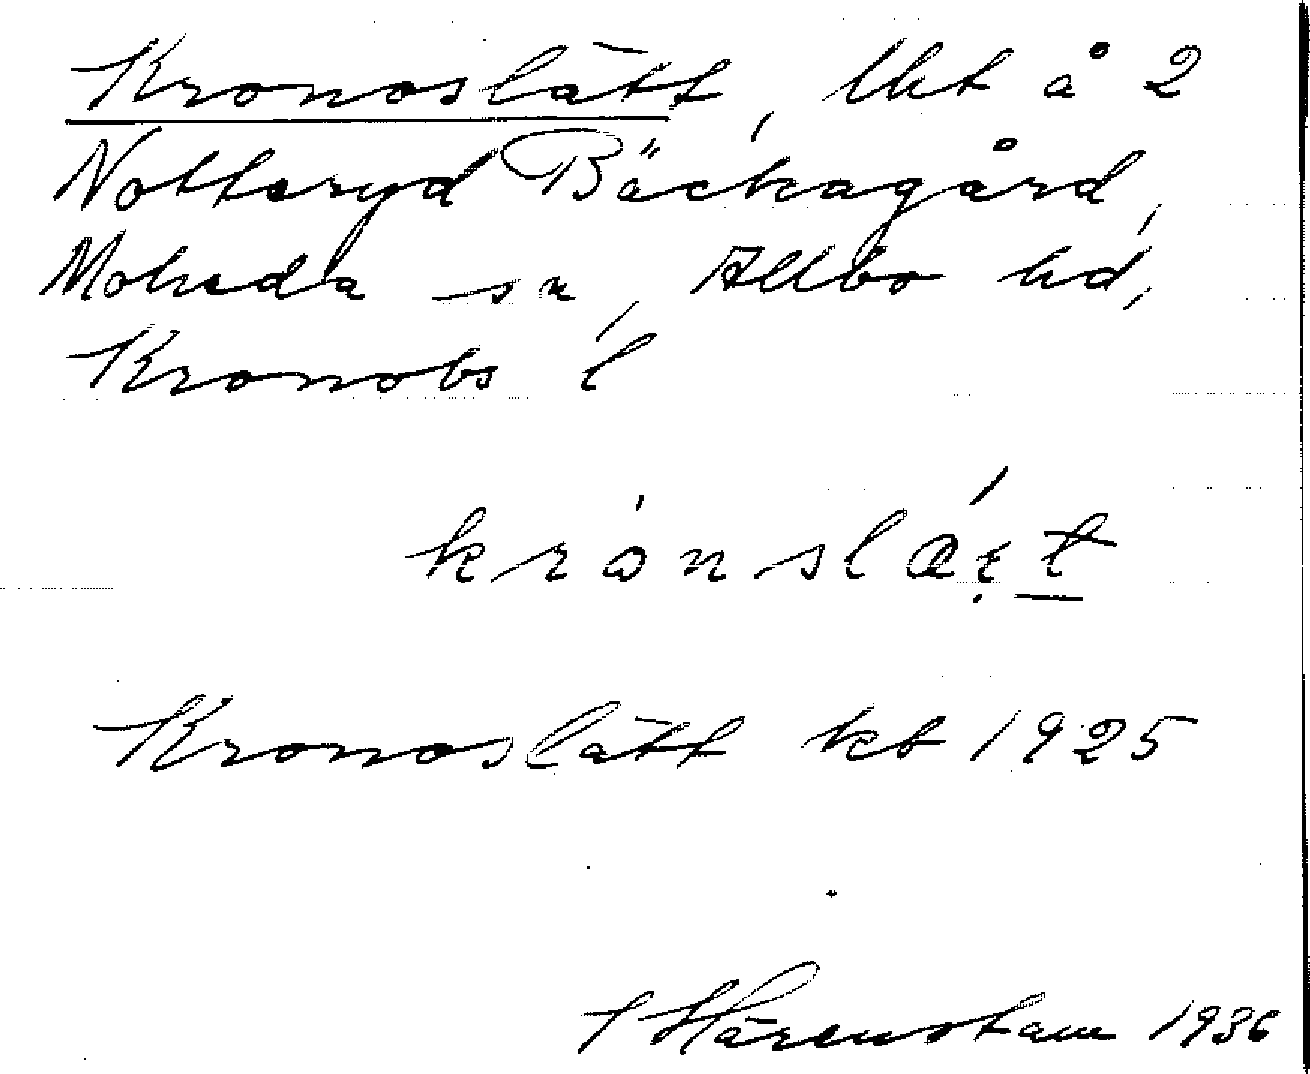 Kronoslätt, lht å 2
Notteryd Bäckagård,
Moheda sn, Allbo hd,
Kronobs l
krȯnslǽt̠
Kronoslätt kb 1925
Härenstam 1936